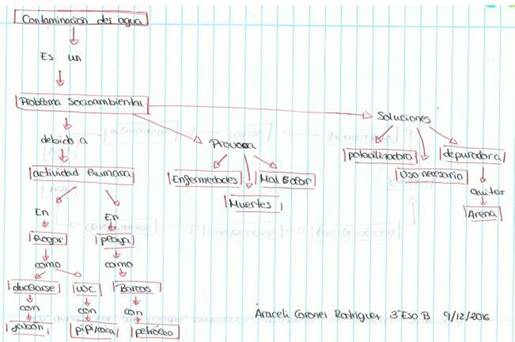 Contaminacion del agua
Es un
Problema Socioambiental
Soluciones
debido a
Provoca
potabilizadora
depuradora
actividad humana
Enfermedades
Mal Sabor
Uso necesario
quitar
Muertes
Arena
En
En
Hogar
como
como
ducharse
WC
Barcos
con
con
con
Jabón
pipí/caca
petróleo
Araceli Coronel Rodriguez 3ºESO B 9/12/2016